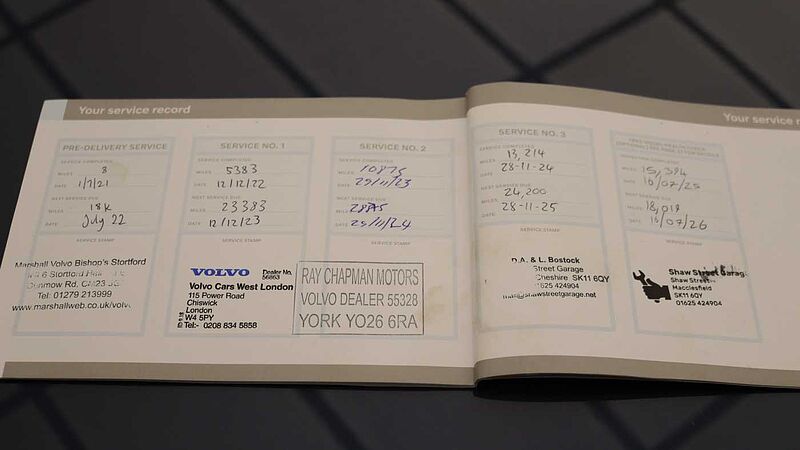 Your service record
PRE-DELIVERY SERVICE
SERVICE COMPLETED
MILES 8
DATE 1/7/21
NEXT SERVICE DUE
MILES 18K
DATE July 22
SERVICE STAMP
Marshall Volvo Bishop's Stortford
Dunmow Rd, CM23
Tel: 01279 213999
www.marshallweb.co.uk/volvo
SERVICE NO. 1
SERVICE COMPLETED
MILES 5383
DATE 12/12/22
NEXT SERVICE DUE
MILES 23383
DATE 12/12/23
SERVICE STAMP
VOLVO Dealer No. 56863
Volvo Cars West London
115 Power Road
Chiswick
London
W4 5PY
Tel:- 0208 834 5858
SERVICE NO. 2
SERVICE COMPLETED
MILES
DATE 29/11/23
NEXT SERVICE DUE
MILES
DATE
SERVICE STAMP
RAY CHAPMAN MOTORS
VOLVO DEALER 55328
YORK YO26 6RA
SERVICE NO. 3
SERVICE COMPLETED
MILES 13,214
DATE 28-11-24
NEXT SERVICE DUE
MILES 24,200
DATE 28-11-25
SERVICE STAMP
D.A. & L. Bostock
Street Garage
Cheshire SK11 6QY
01625 424904
shawstreetgarage.net
Your service re
MILES 15,384
DATE 10/07/25
NEXT SERVICE DUE
MILES 18,019
DATE 10/07/26
SERVICE STAMP
Shaw Street Garage
Shaw Street
Macclesfield
SK11 6QY
01625 424904